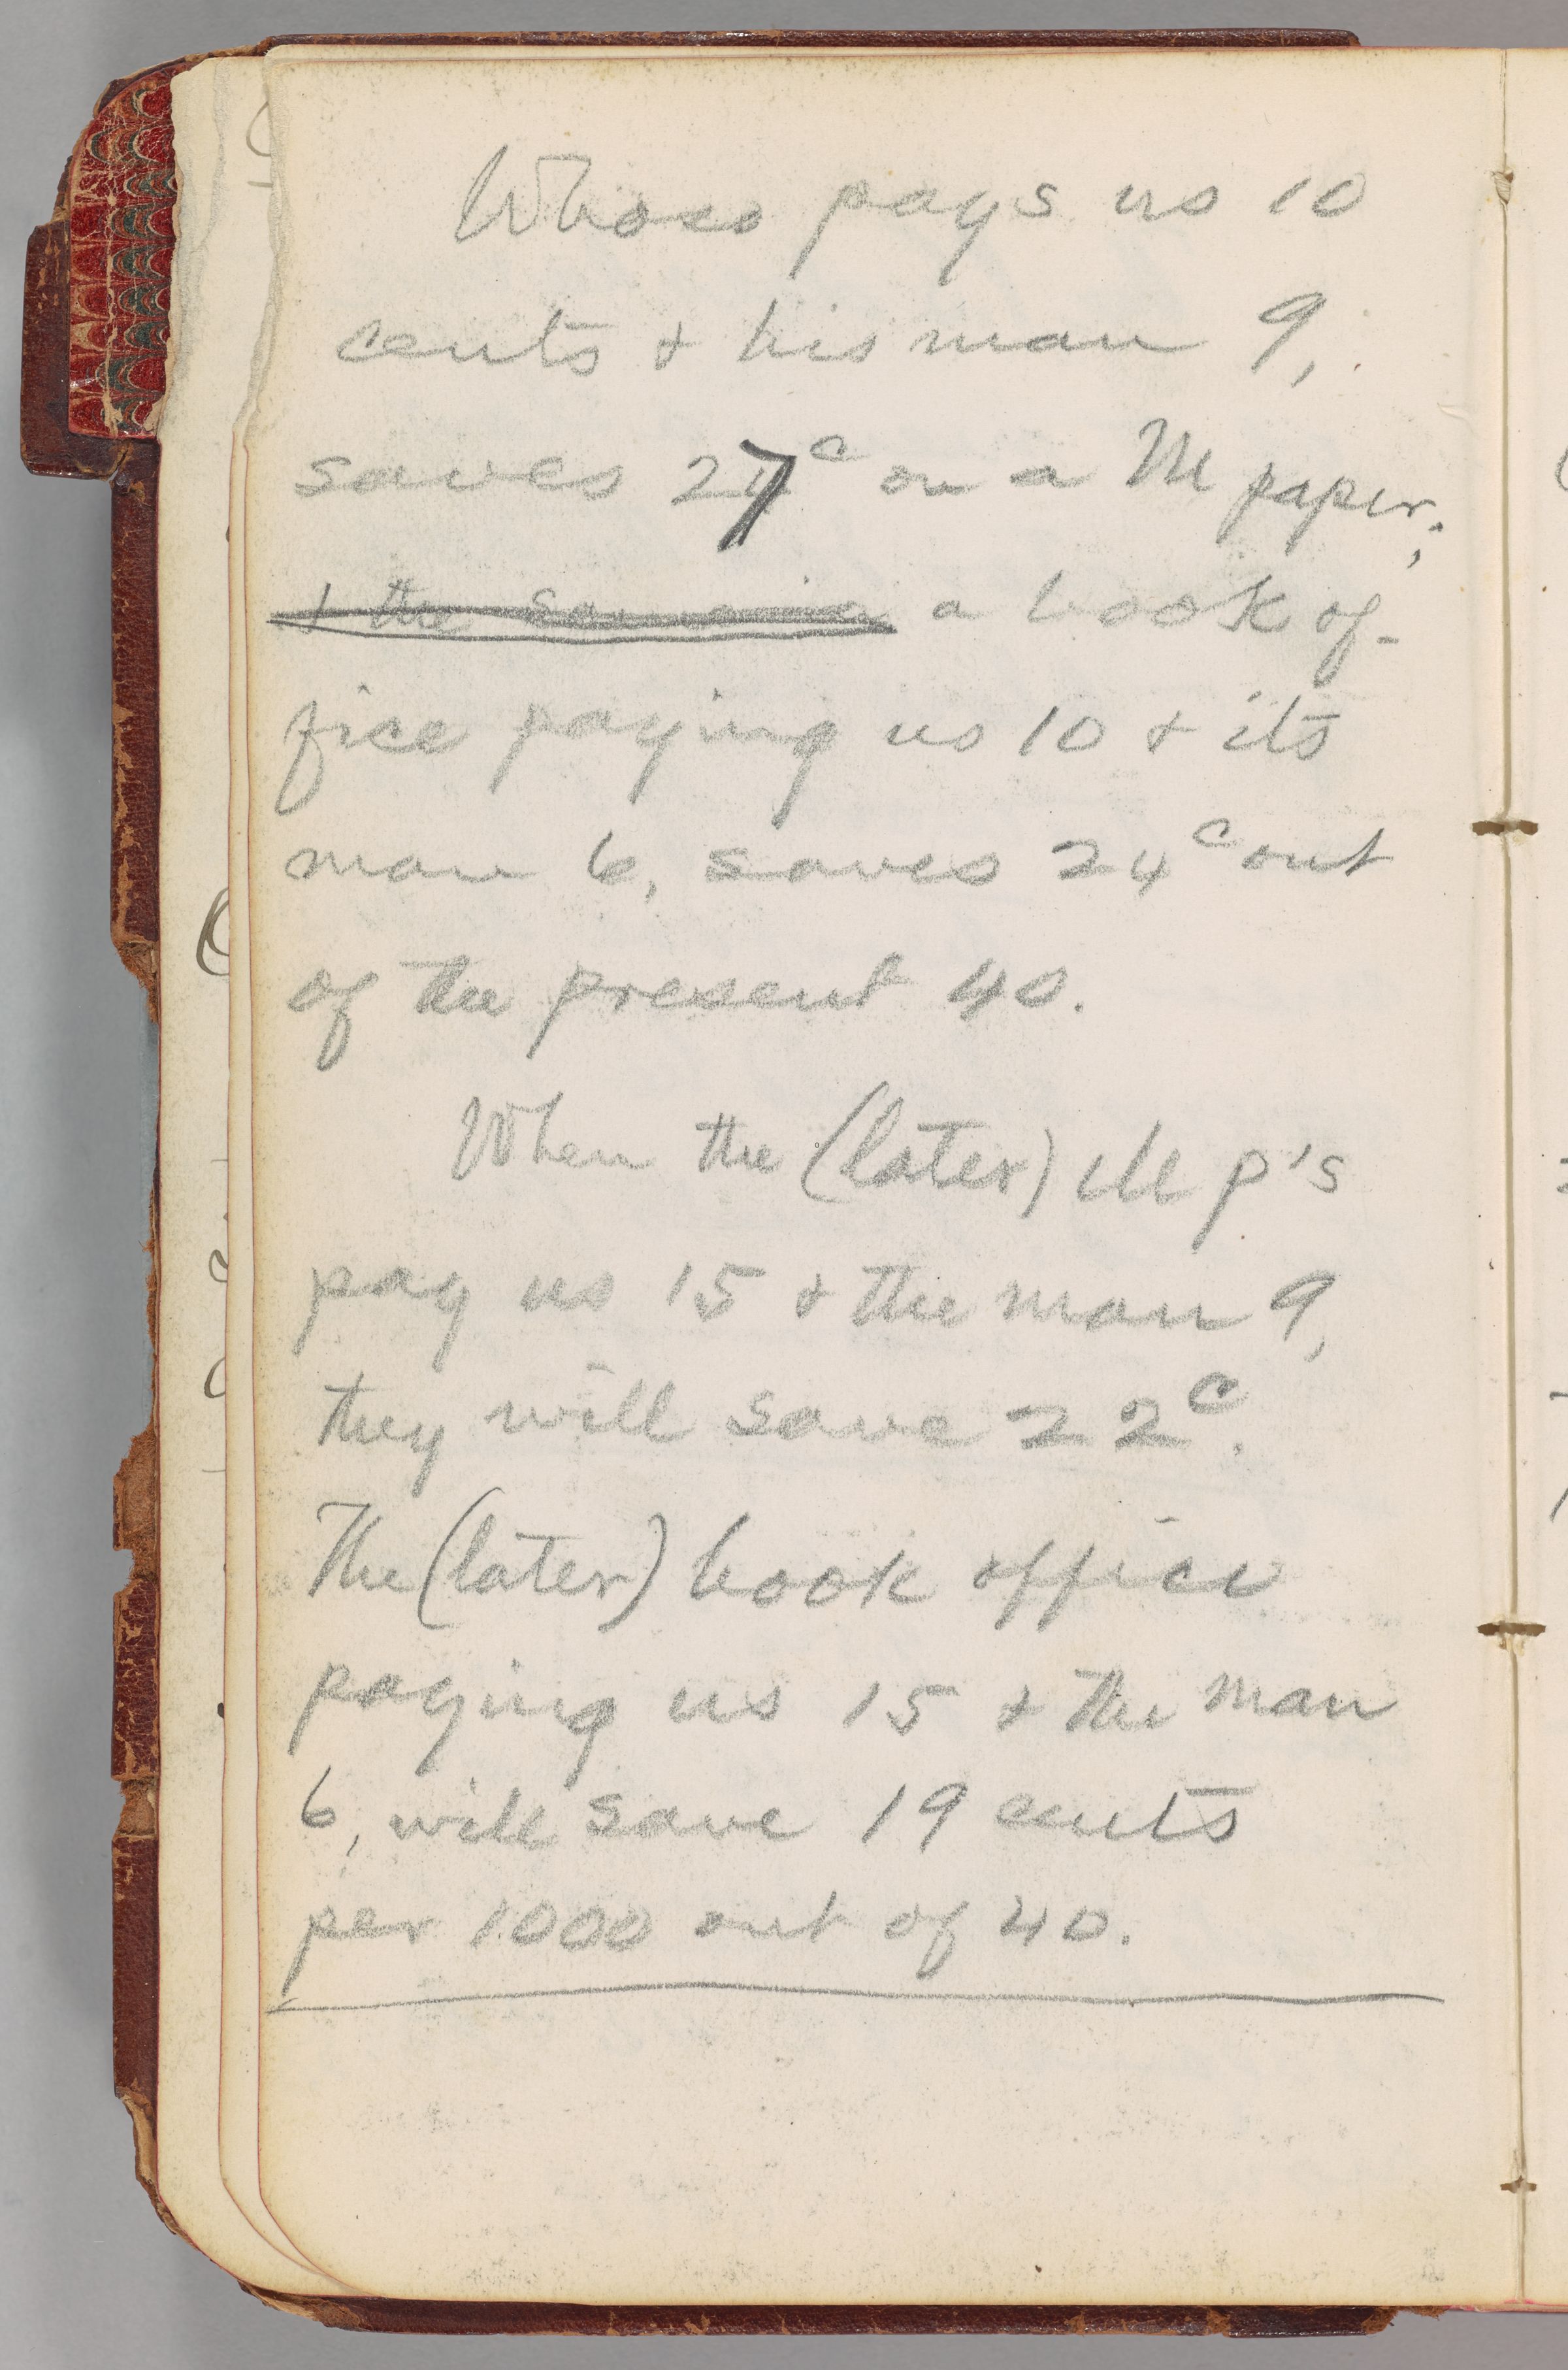 Whoso pays us 10
cents & his man 9,
saves 27c on a M paper;
& the a book of-
fice paying us 10 & its
man 6, saves 24c out
of the present 40.
When the (later) M p's
pay us 15 & the man 9,
they will save 22c.
The (later) book office
paying us 15 & the man
6, will save 19 cents
per 1000 out of 40.